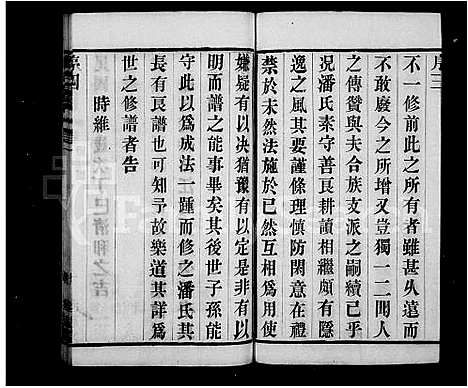 序三
不一修前此之所有者甚庶久遠而
不敢廢今之所增又豈獨一二聞人
之傳贊與夫合族支派之嗣續已乎
況潘氏素守善良耕讀相繼頗有隱
逸之風其要謹條理慎防閑意在禮
禁於未然法施於已然互相爲用使
嫌疑有以決猶豫有以定是非有以
明而譜之能事畢矣其後世子孫能
守此以爲成法一踵而修之潘氏其
長有良譜也可知矣予故樂道其詳爲
世之修譜者告
時維
序四